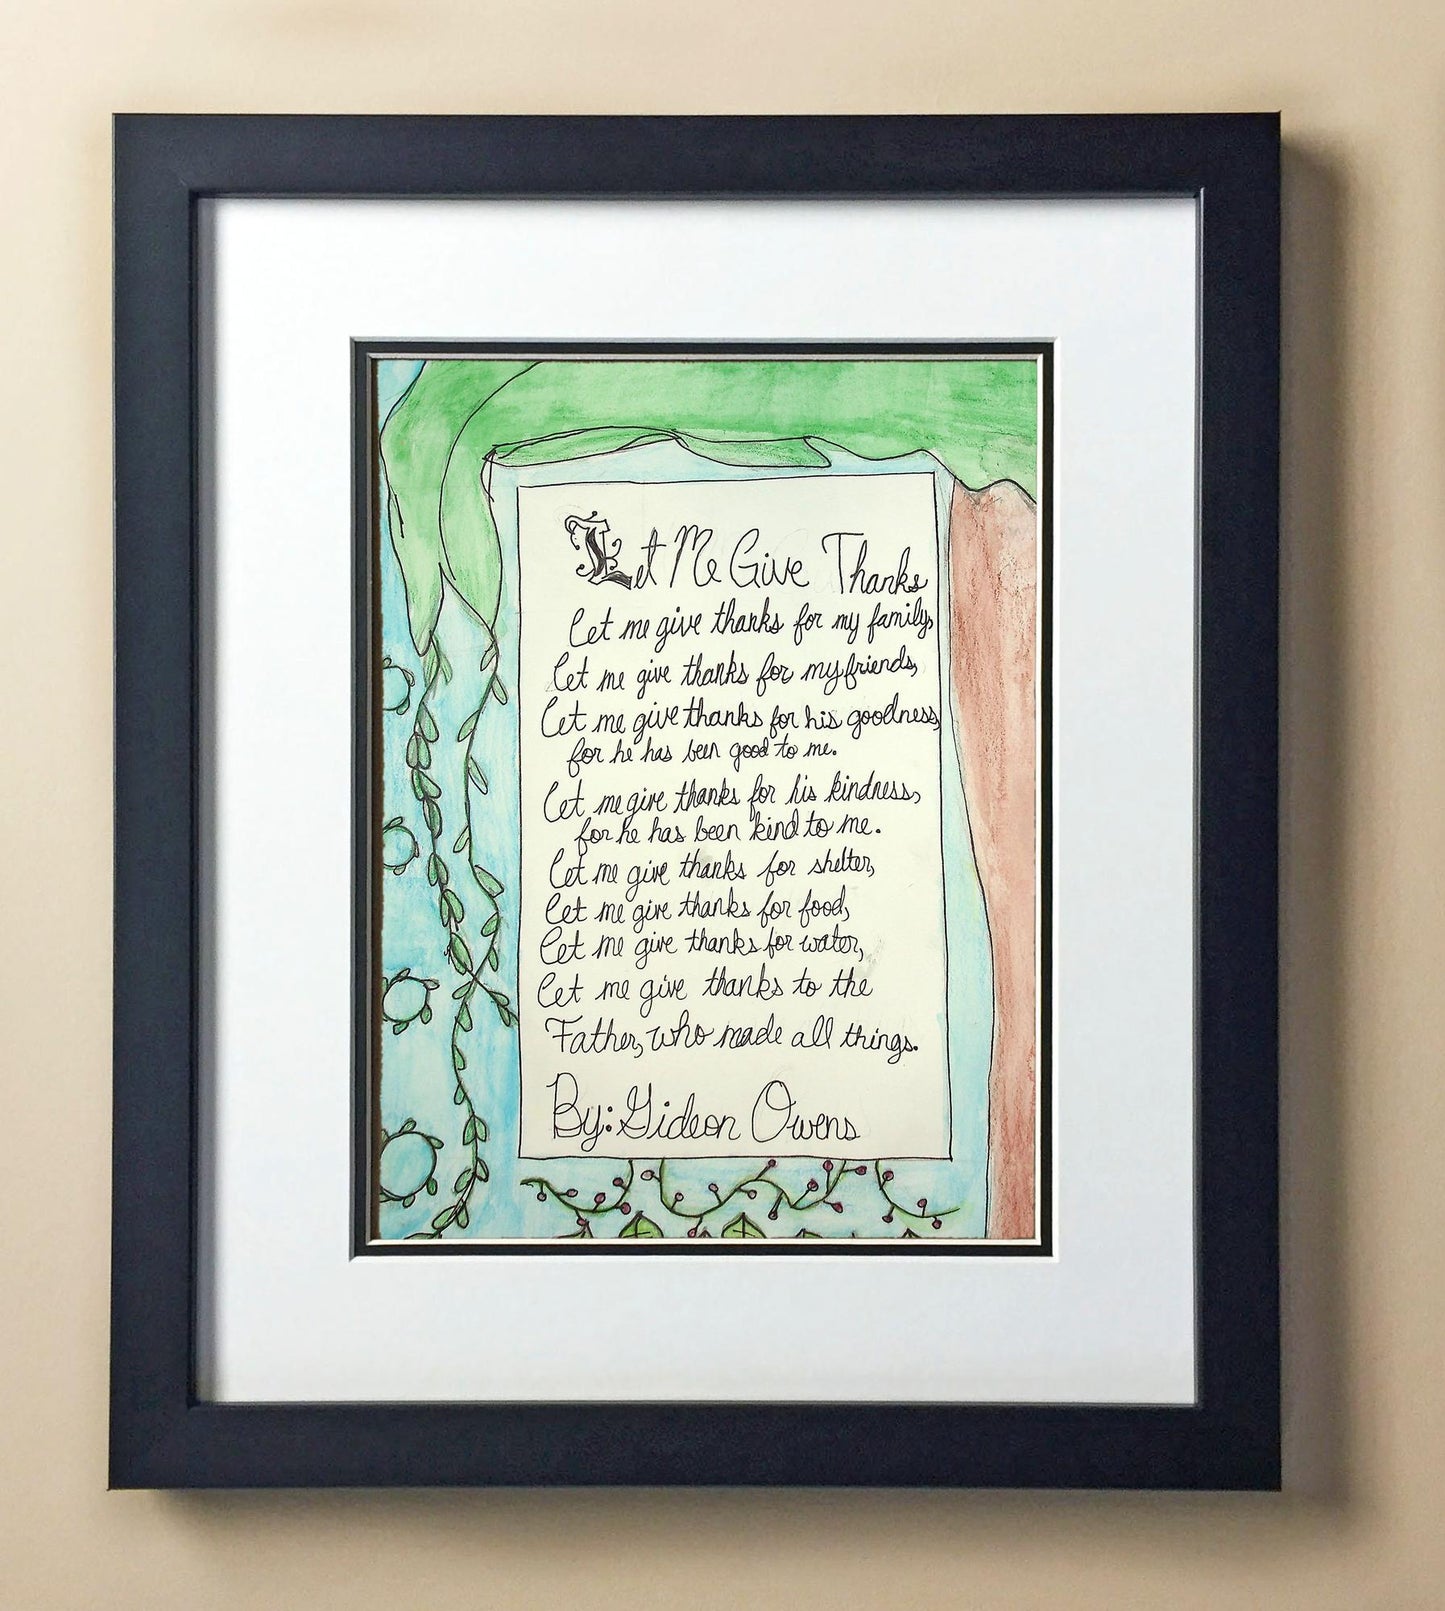 Let Me Give Thanks
Let me give thanks for my family,
Let me give thanks for my friends,
Let me give thanks for his goodness,
for he has been good to me.
Let me give thanks for his kindness,
for he has been kind to me.
Let me give thanks for shelter,
Let me give thanks for food,
Let me give thanks for water,
Let me give thanks to the
Father, who made all things.
By: Gideon Owens